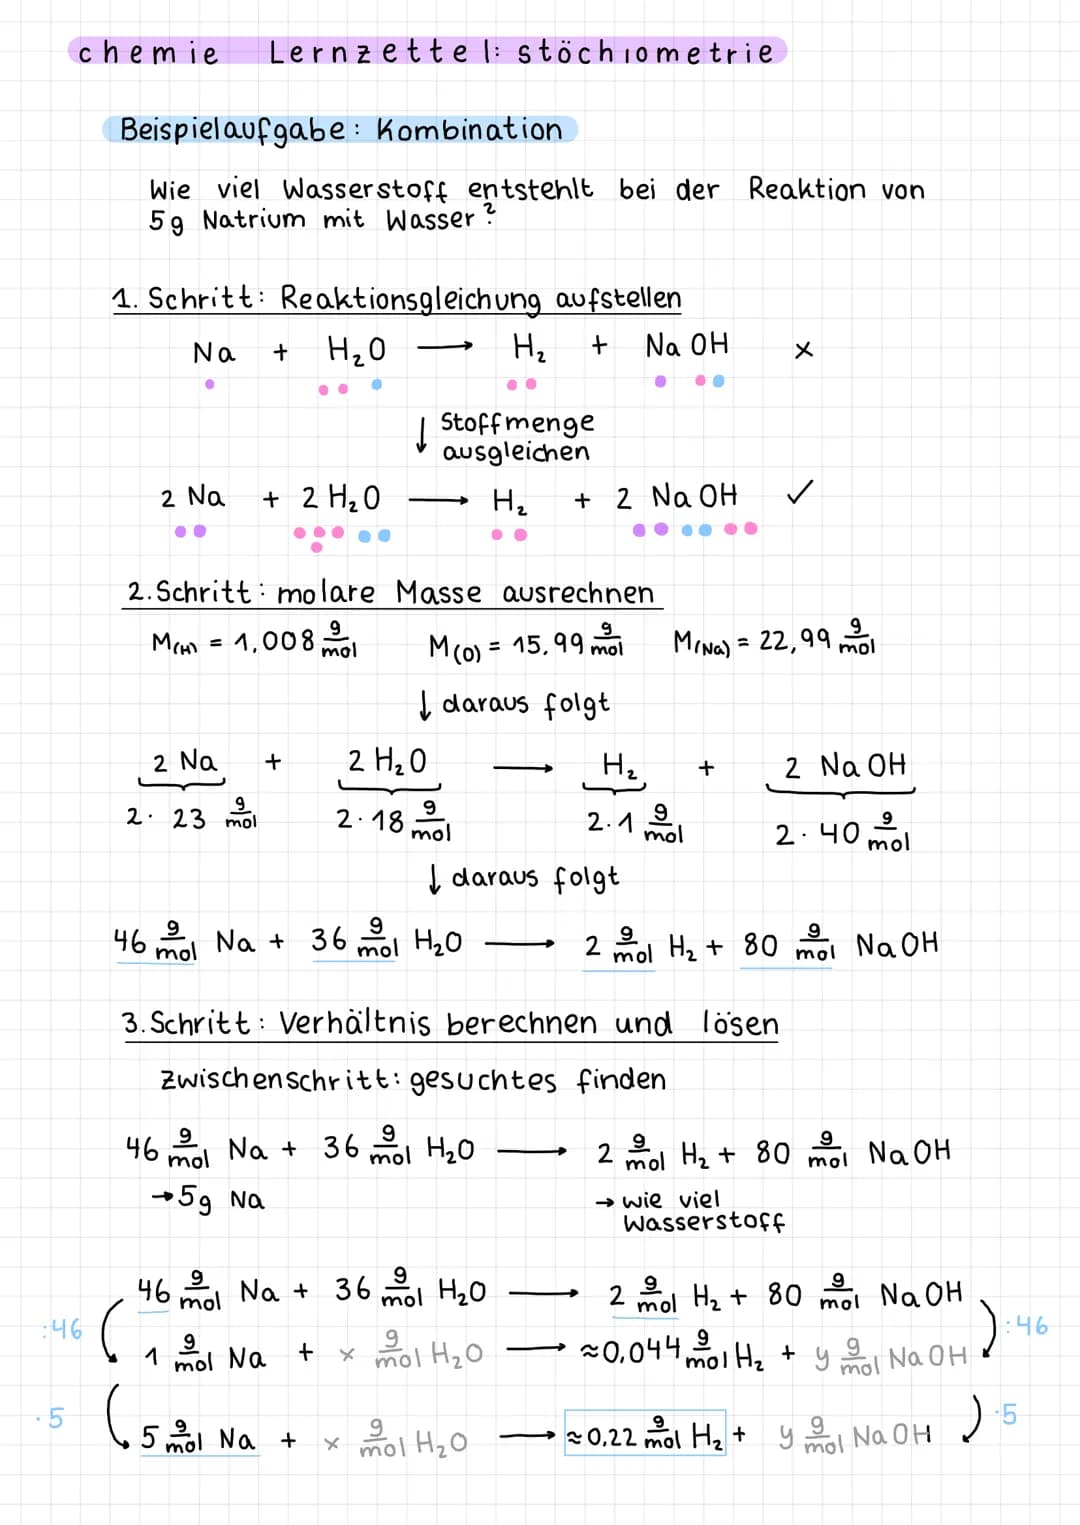 chemie Lernzettel: stöchiometrie
Beispielaufgabe: Kombination
Wie viel Wasserstoff entstehlt bei der Reaktion von
5g Natrium mit Wasser?
1. Schritt: Reaktionsgleichung aufstellen
Na + H₂O ⟶ H₂ + NaOH ×
↓ Stoffmenge
ausgleichen
2 Na + 2 H₂O ⟶ H₂ + 2 NaOH ✓
2. Schritt: molare Masse ausrechnen
M(H) = 1,008 g/mol M(O) = 15,99 g/mol M(Na) = 22,99 g/mol
↓ daraus folgt
2 Na + 2 H₂O ⟶ H₂ + 2 NaOH
2 · 23 g/mol 2 · 18 g/mol 2 · 1 g/mol 2 · 40 g/mol
↓ daraus folgt
46 g/mol Na + 36 g/mol H₂O ⟶ 2 g/mol H₂ + 80 g/mol NaOH
3. Schritt: Verhältnis berechnen und lösen
Zwischenschritt: gesuchtes finden
46 g/mol Na + 36 g/mol H₂O ⟶ 2 g/mol H₂ + 80 g/mol NaOH
→ 5g Na → wie viel
Wasserstoff
46 g/mol Na + 36 g/mol H₂O ⟶ 2 g/mol H₂ + 80 g/mol NaOH
:46 :46
1 g/mol Na + x g/mol H₂O ⟶ ≈0,044 g/mol H₂ + y g/mol NaOH
·5 ·5
5 g/mol Na + x g/mol H₂O ⟶ ≈0,22 g/mol H₂ + y g/mol NaOH